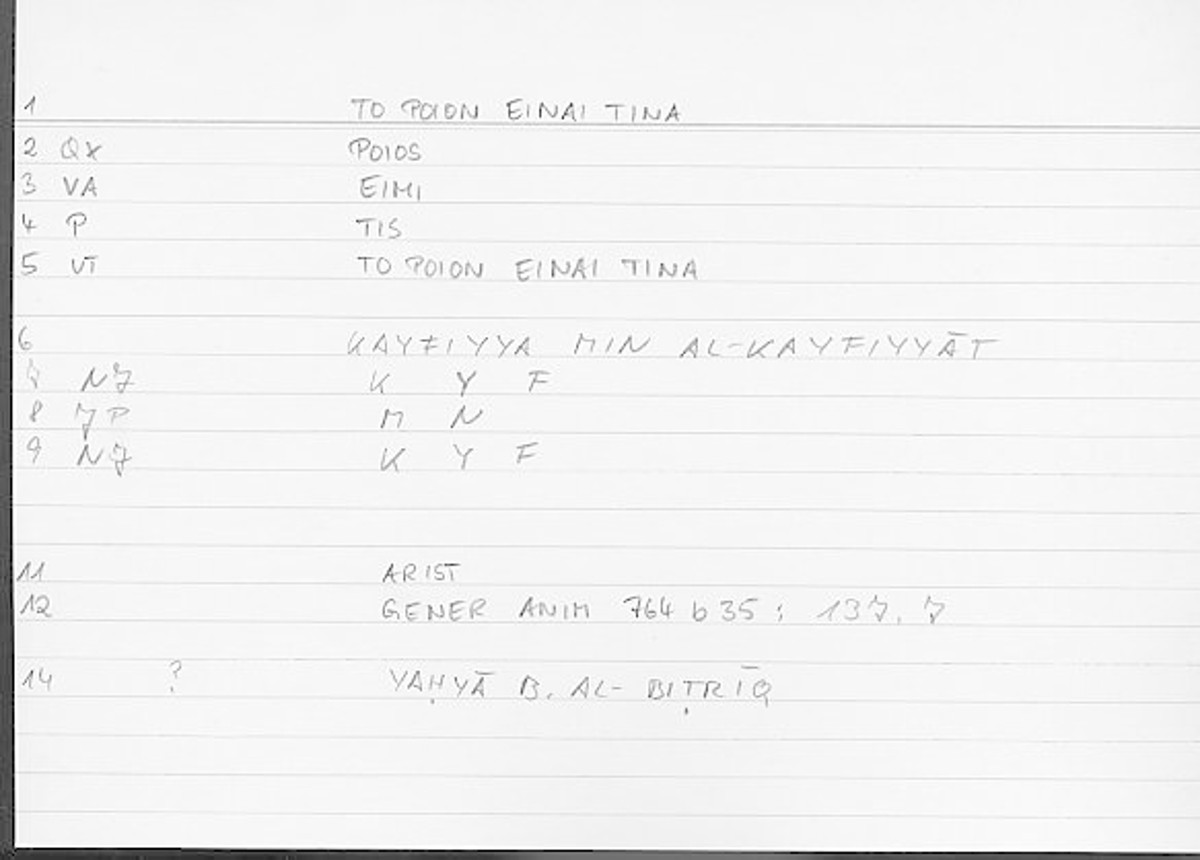 1 TO POION EINAI TINA
2 QX POIOS
3 VA EIMI
4 P TIS
5 VT TO POION EINAI TINA
6 KAYFIYYA MIN AL-KAYFIYYĀT
7 NJ K Y F
8 JP M N
9 NJ K Y F
11 ARIST
12 GENER ANIM 764 b 35 ; 137, 7
14 ? YAḤYĀ B. AL-BIṬRĪQ